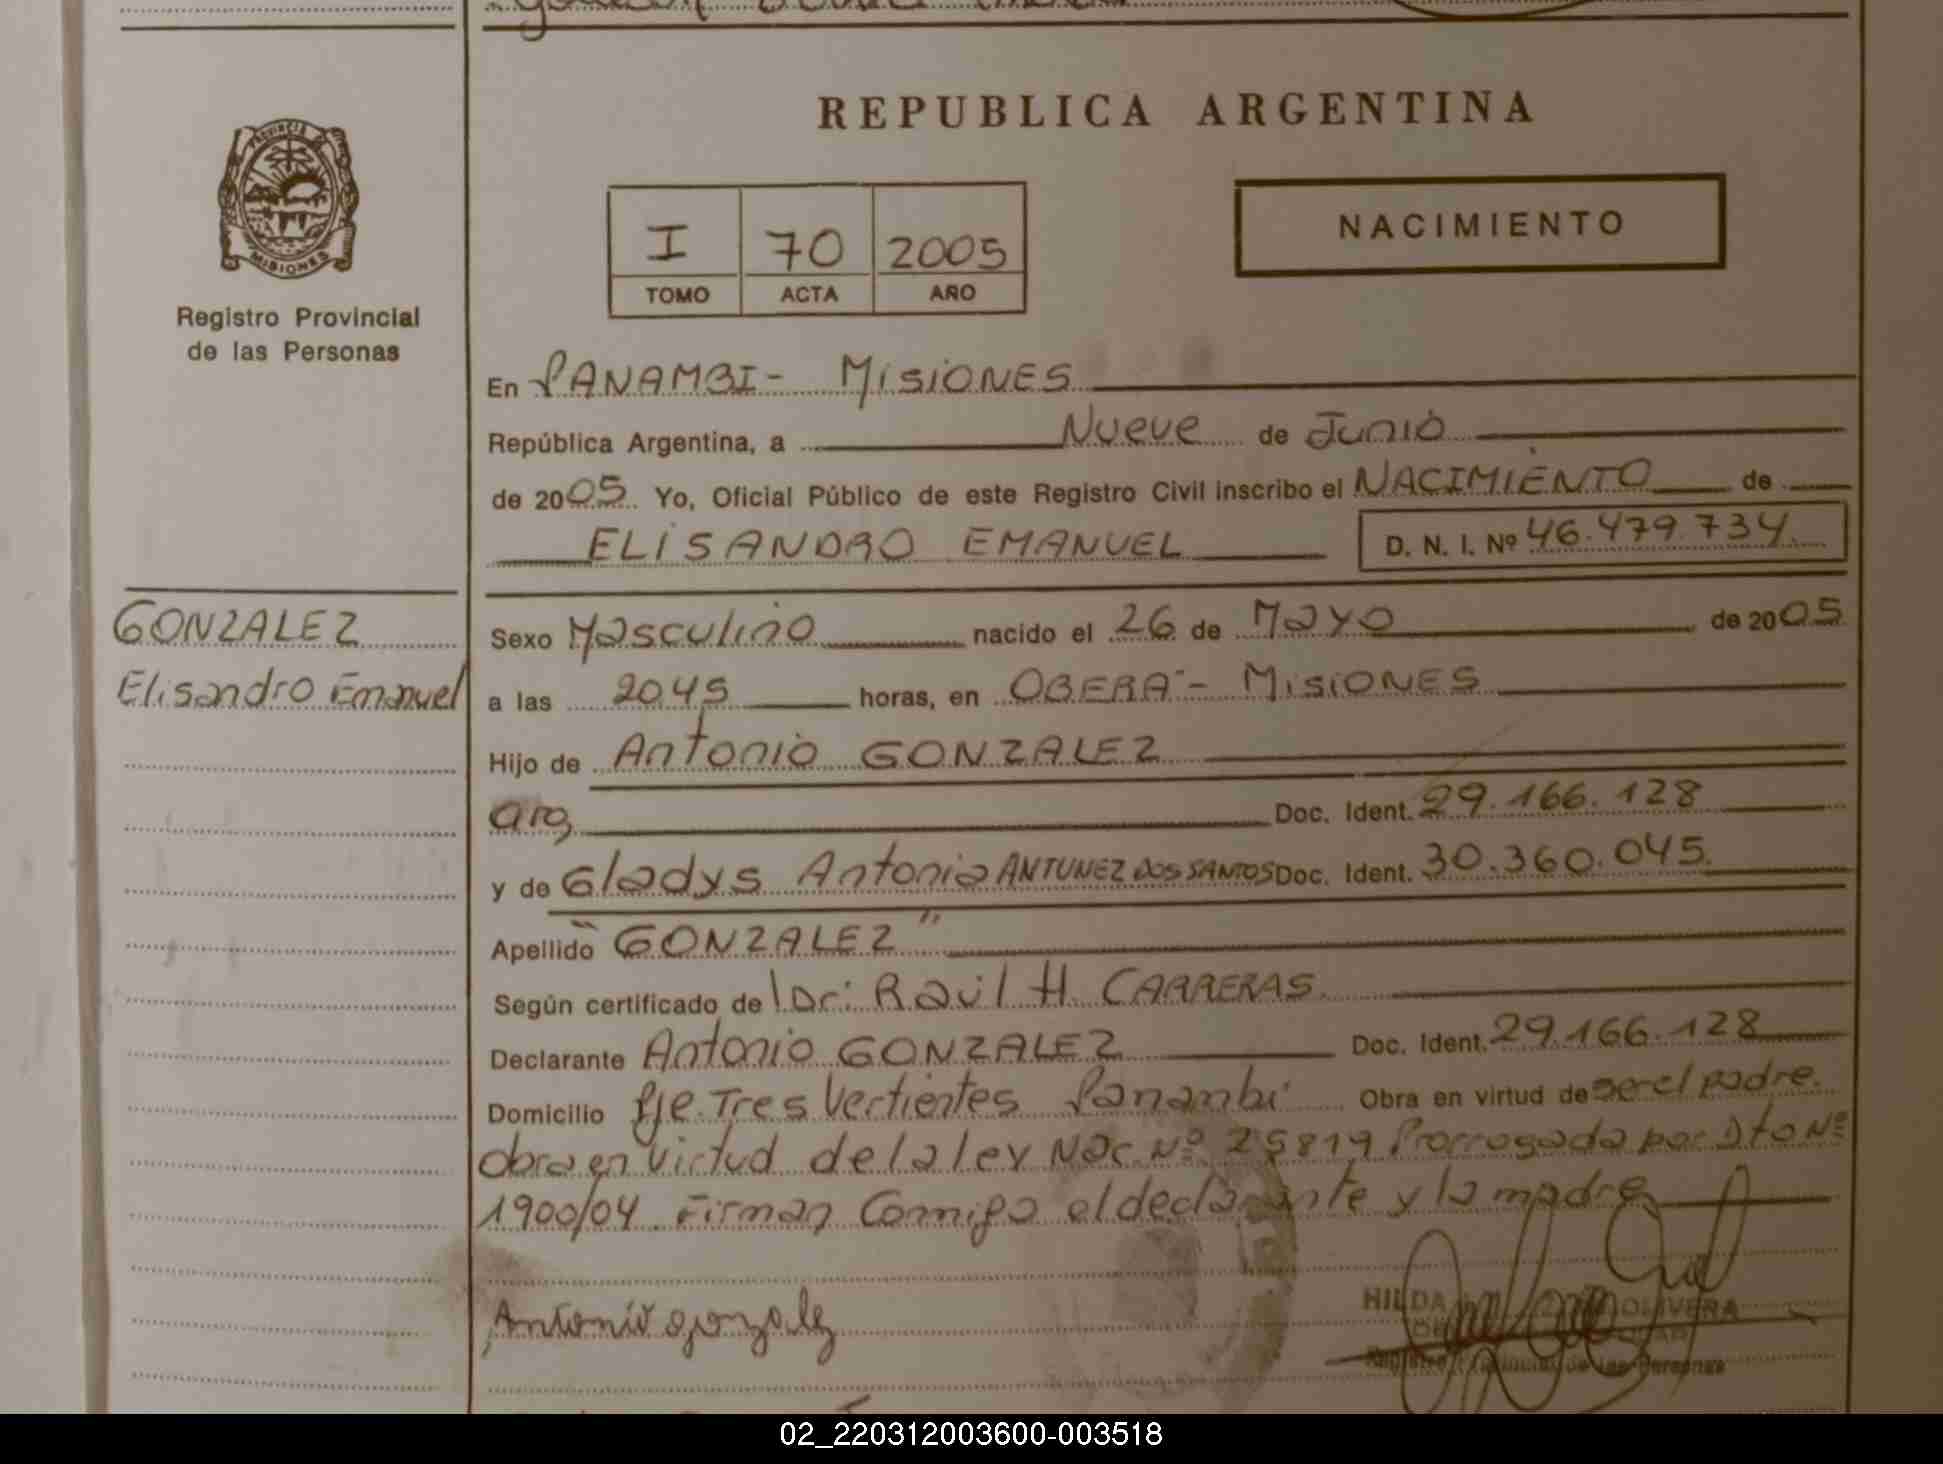 PROVINCIA DE
MISIONES
Registro Provincial
de las Personas
GONZALEZ
Elisandro Emanuel
REPUBLICA ARGENTINA
I 70 2005
TOMO ACTA AÑO
NACIMIENTO
En PANAMBI - MISIONES
República Argentina, a Nueve de Junio
de 2005. Yo, Oficial Público de este Registro Civil inscribo el NACIMIENTO de
ELISANDRO EMANUEL D. N. I. Nº 46.479.734.
Sexo Masculino nacido el 26 de Mayo de 2005
a las 2045 horas, en OBERA - MISIONES
Hijo de Antonio GONZALEZ
arg, Doc. Ident. 29.166.128
y de Gladys Antonia ANTUNEZ DOS SANTOS Doc. Ident. 30.360.045.
Apellido "GONZALEZ"
Según certificado de Dr: Raúl H. CARRERAS.
Declarante Antonio GONZALEZ Doc. Ident. 29.166.128
Domicilio Pje. Tres Vertientes Panambi Obra en virtud de ser el padre.
obra en virtud de la ley Nac. Nº 25819 Prorrogada por Dto Nº
1900/04. Firman Conmigo el declarante y la madre
Antonio gonzalez
HILDA OLIVERA
Registro Provincial de las Personas
02_220312003600-003518